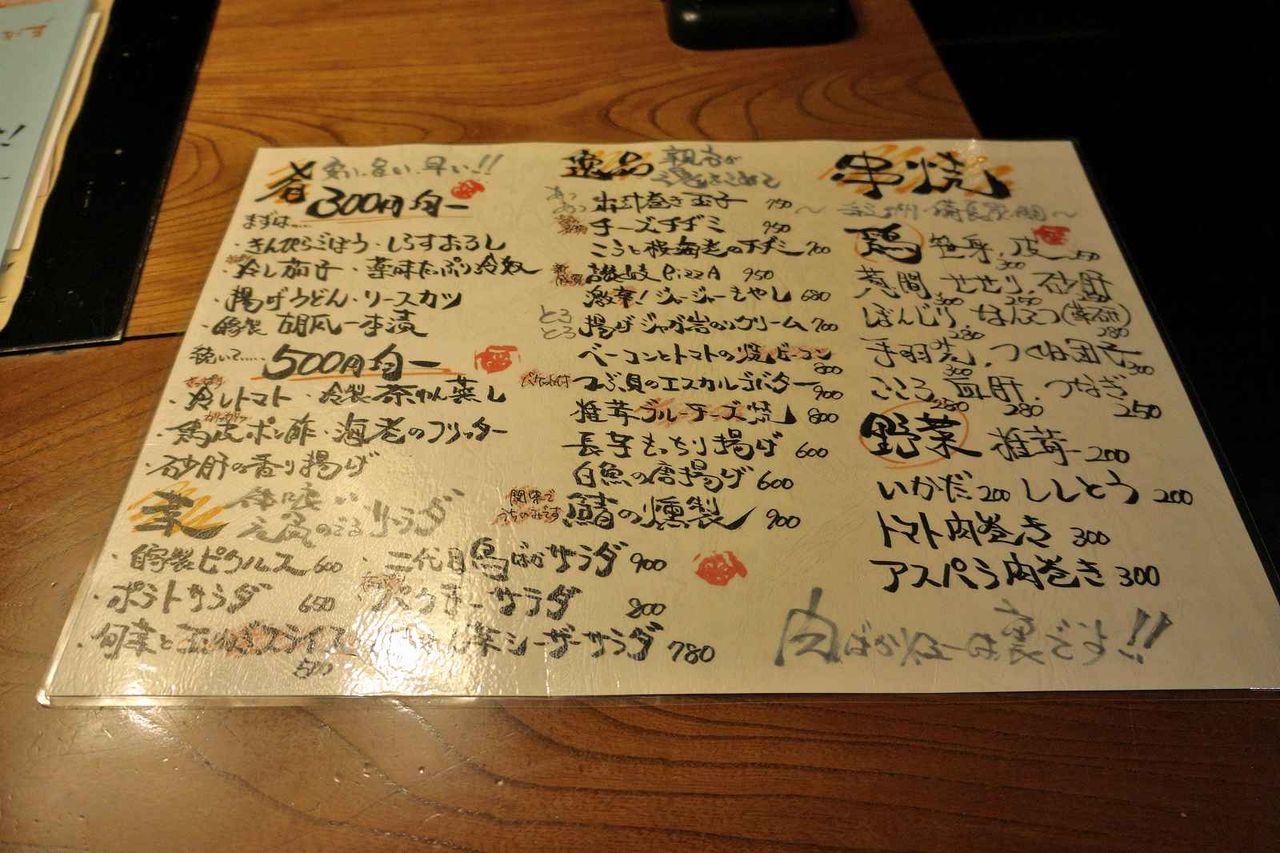 肴 安い、旨い、早い!!
300円均一
まずは…
・きんぴらごぼう・しらすおろし
・冷し茄子・薬味たっぷり冷奴
・揚げうどん・リースカツ
・自家製 胡瓜一本漬
続いて……500円均一
・冷しトマト・冷製茶わん蒸し
・鳥皮ポン酢・海老のフリッター
・砂肝の香り揚げ
菜 元気のでるサラダ
・自家製ピクルス 600
・二代目鳥ばかサラダ 900
・ポテトサラダ 650
・パクチーサラダ 800
・旬菜と玉ねぎスライス
菜シーザーサラダ 780
逸品
出汁巻き玉子 750
チーズチヂミ 750
桜海老のチヂミ 700
讃岐PizzA 950
激辛!ジャージャーもやし 680
とろとろ 揚げジャガ岩のりクリーム 700
ベーコンとトマトの焼ビーフン 800
つぶ貝のエスカルゴバター 900
椎茸ブルーチーズ焼 800
長芋もっちり揚げ 600
白魚の唐揚げ 600
鯖の燻製 900
串焼
鶏 笹身 300 皮 250
肩間 300 せせり 250 砂肝
ぼんじり 280 なんこつ(薬研) 280
手羽先 300 つくね団子 300
こころ 280 血肝 280 つなぎ 250
野菜 椎茸 200
いかだ 200 ししとう 200
トマト肉巻き 300
アスパラ肉巻き 300
肉ばかメニューは裏ですよ!!